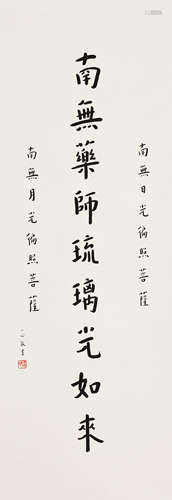 南無日光徧照菩薩
南無藥師琉璃光如來
南無月光徧照菩薩